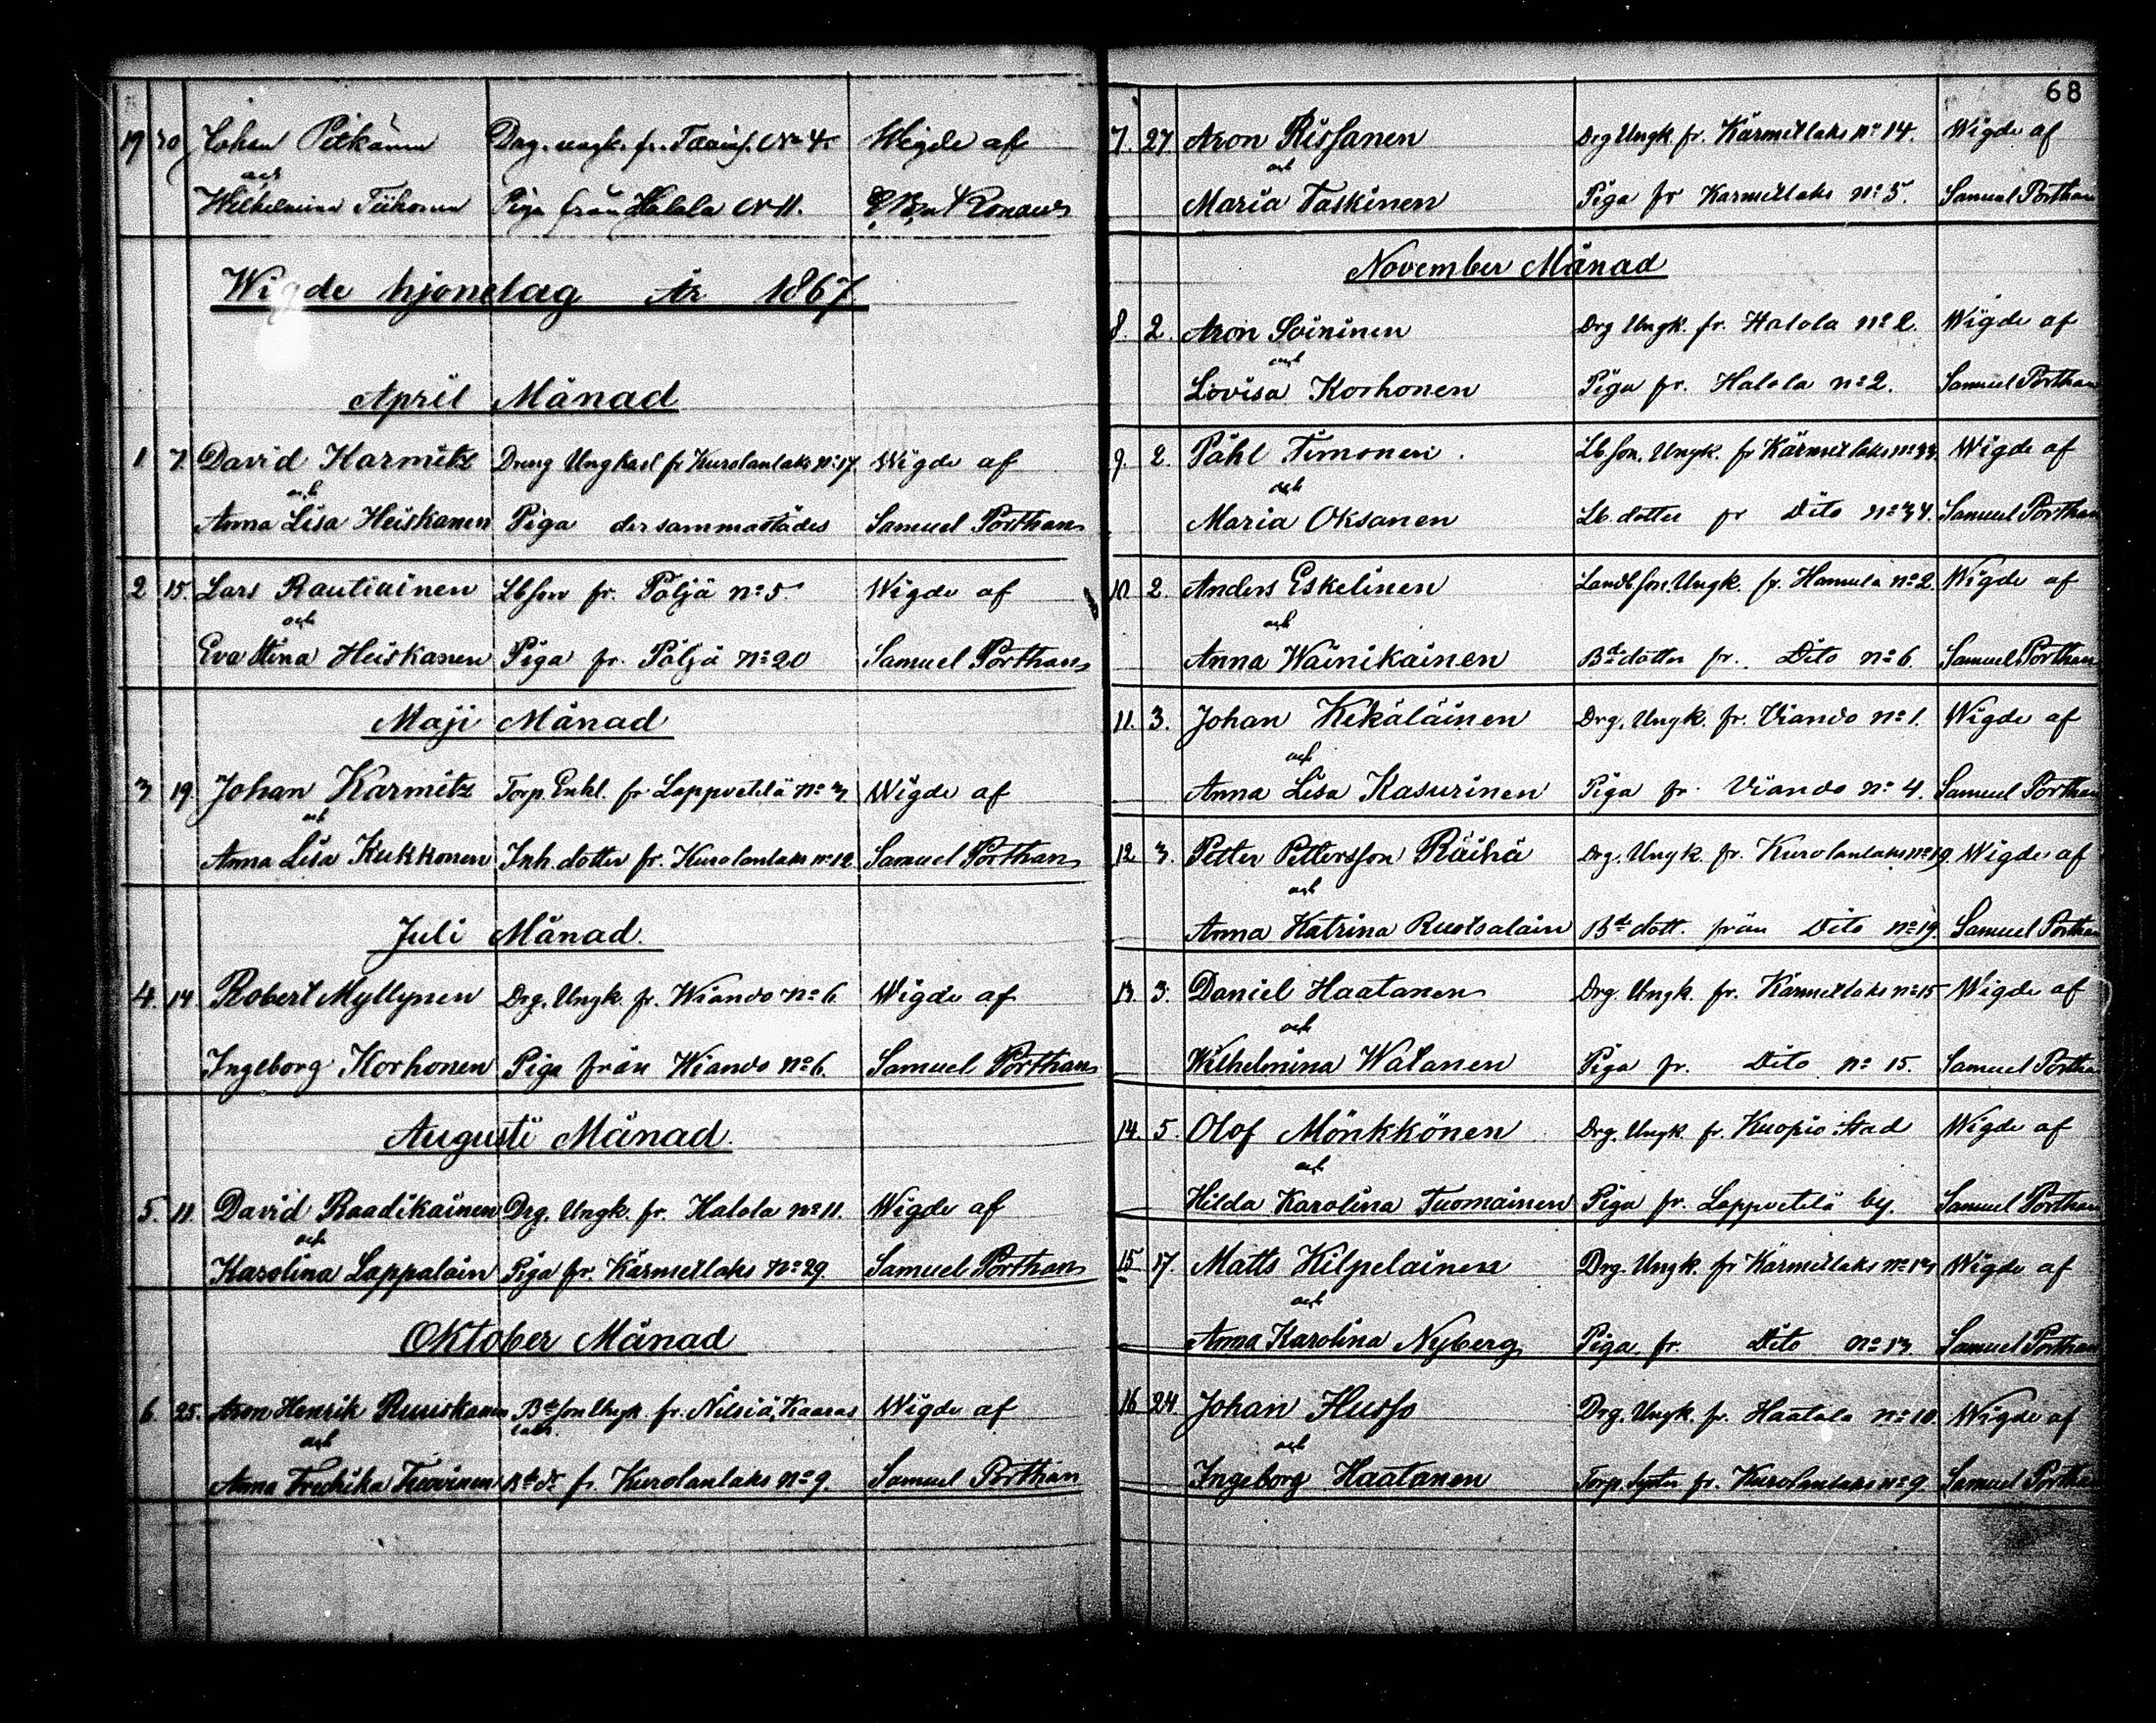 19 30 Johan Pitkänen Drg. ungk. fr. No 4. Wigde af
och
Wilhelmina Tiihonen Piga från Halola No 11.
Wigde hjonelag År 1867
April Månad
1 7. David Karmitz Dreng Ungkarl fr Kurolanlaks No 17. Wigde af
och
Anna Lisa Heiskanen Piga dersammastädes Samuel Porthan
2 15. Lars Rautiainen Lbson fr. Pöljä No 5. Wigde af
och
Eva Stina Heiskanen Piga fr. Pöljä No 20 Samuel Porthan
Maji Månad
3. 19. Johan Karmitz Torp. Enkl. fr Lappvetelä No 3. Wigde af
och
Anna Lisa Kukkonen Inh. dotter fr. Kurolanlaks No 12. Samuel Porthan
Juli Månad.
4. 14. Robert Myllynen Drg. Ungk. fr. Wiando No 6. Wigde af
Ingeborg Korhonen Piga från Wiando No 6. Samuel Porthan
Augusti Månad.
5. 11. David Raadikainen Drg. Ungk. fr. Halola No 11. Wigde af
och
Karolina Lappalain Piga fr. Kärmetlaks No 29. Samuel Porthan
Oktober Månad
6. 25. Aron Henrik Ruuskanen Bdeson Ungk. fr. Nilsiä, Kaaras Wigde af
och laks.
Anna Fredrika Kuvinen Bde dr fr. Kurolanlaks No 9. Samuel Porthan
68
7. 27. Aron Rissanen Drg Ungk. fr. Kärmetlaks No 14. Wigde af
och
Maria Taskinen Piga fr Karmetlaks No 5. Samuel Porthan
November Månad
8. 2. Aron Soininen Drg Ungk. fr. Halola No 2. Wigde af
och
Lovisa Korhonen Piga fr. Halola No 2. Samuel Porthan
9. 2. Påhl Timonen. Lb. son. Ungk. fr Kärmetlaks No 34. Wigde af
och
Maria Oksanen Lb. dotter fr Dito No 34. Samuel Porthan
10. 2. Anders Eskelinen Landb. son. Ungk. fr. Hamula No 2. Wigde af
och
Anna Wäinikäinen Bde dotter fr. Dito No 6. Samuel Porthan
11. 3. Johan Kekäläinen Drg. Ungk. fr. Viando No 1. Wigde af
och
Anna Lisa Kasurinen Piga fr. Viando No 4. Samuel Porthan
12 3. Petter Pettersson Räihä Drg. Ungk. fr. Kurolanlaks No 19. Wigde af
och
Anna Katrina Ruotsalain Bde dott. från Dito No 19. Samuel Porthan
13. 3. Daniel Haatanen Drg. Ungk. fr. Kärmetlaks No 15 Wigde af
och
Wilhelmina Watanen Piga fr. Dito No 15. Samuel Porthan
14. 5. Olof Mönkkönen Drg. Ungk. fr. Kuopio Stad Wigde af
och
Hilda Karolina Tuomainen Piga fr. Lappvetelä by. Samuel Porthan
15 17. Matts Kilpeläinen Drg. Ungk. fr Kärmetlaks No 13. Wigde af
och
Anna Karolina Nyberg Piga. fr. Dito No 13. Samuel Porthan
16 24 Johan Husso Drg. Ungk. fr. Haatala No 10. Wigde af
och
Ingeborg Haatanen Torp. syster fr. Kurolanlaks No 9. Samuel Porthan